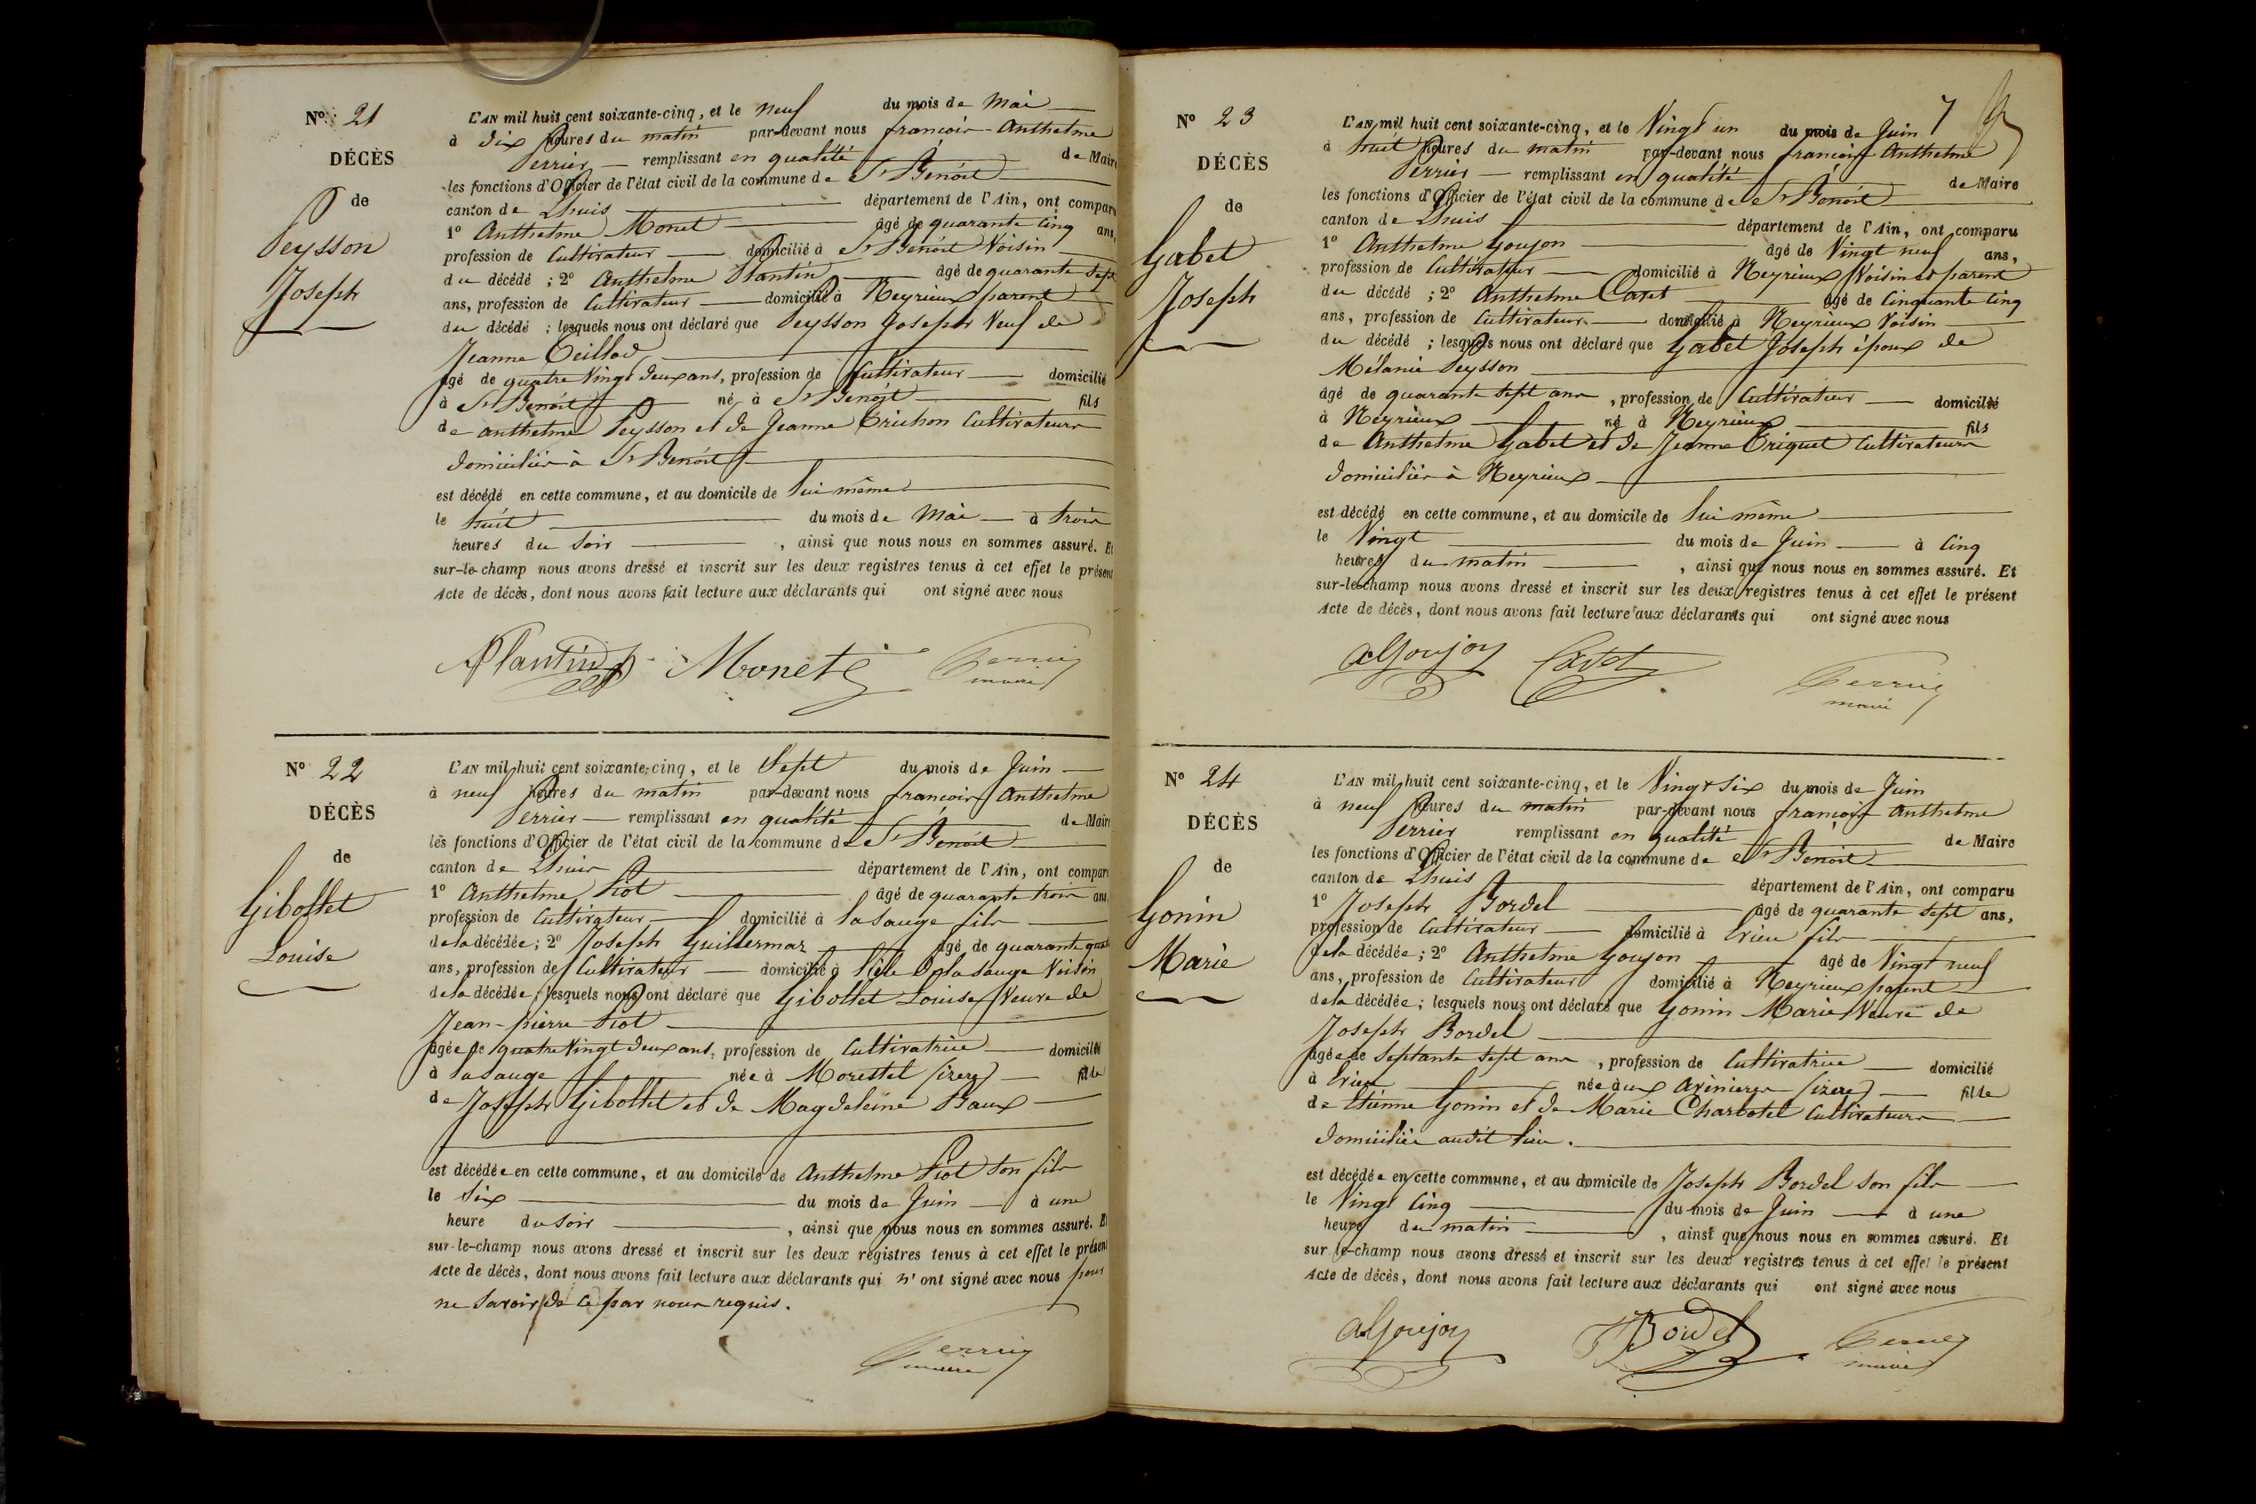 N° 21
DÉCÈS
de
Peysson
Joseph
L'AN mil huit cent soixante-cinq, et le neuf du mois de Mai
à dix heures du matin par-devant nous françois Anthelme
Perrier remplissant en qualité de Maire
les fonctions d'Officier de l'état civil de la commune de St Benoît
canton de Lhuis département de l'Ain, ont comparu
1° Anthelme Monet âgé de quarante cinq ans,
profession de Cultivateur domicilié à St Benoît Voisin
du décédé ; 2° Anthelme Plantin âgé de quarante sept
ans, profession de Cultivateur domicilié à Neyrieux parent
du décédé ; lesquels nous ont déclaré que Peysson Joseph Veuf de
Jeanne Teillod
âgé de quatre Vingt deux ans, profession de Cultivateur domicilié
à St Benoît né à St Benoît fils
de anthelme Peysson et de Jeanne Trichon Cultivateurs
domiciliés à St Benoît
est décédé en cette commune, et au domicile de lui même
le huit du mois de Mai à trois
heures du Soir , ainsi que nous nous en sommes assuré. Et
sur-le-champ nous avons dressé et inscrit sur les deux registres tenus à cet effet le présent
Acte de décès, dont nous avons fait lecture aux déclarants qui ont signé avec nous
APlantin Monet Perrier
maire
N° 22
DÉCÈS
de
Gibollet
Louise
L'AN mil huit cent soixante-cinq, et le Sept du mois de Juin
à neuf heures du matin par-devant nous françois Anthelme
Perrier remplissant en qualité de Maire
les fonctions d'Officier de l'état civil de la commune de St Benoît
canton de Lhuis département de l'Ain, ont comparu
1° Anthelme Piot âgé de quarante trois ans,
profession de Cultivateur domicilié à la Sauge fils
de la décédée ; 2° Joseph Guillermar âgé de quarante quatre
ans, profession de Cultivateur domicilié à l'ile de la Sauge Voisin
de la décédée ; lesquels nous ont déclaré que Gibollet Louise Veuve de
Jean-pierre Piot
âgée de quatre Vingt deux ans, profession de Cultivatrice domicilié
à la Sauge née à Morestel (isere) fille
de Joseph Gibollet et de Magdeleine Baux
est décédée en cette commune, et au domicile de Anthelme Piot son fils
le Six du mois de Juin à une
heure du soir , ainsi que nous nous en sommes assuré. Et
sur-le-champ nous avons dressé et inscrit sur les deux registres tenus à cet effet le présent
Acte de décès, dont nous avons fait lecture aux déclarants qui n'ont signé avec nous pour
ne Savoir de ce par nous requis.
Perrier
maire
7
N° 23
DÉCÈS
de
Gabet
Joseph
L'AN mil huit cent soixante-cinq, et le Vingt un du mois de Juin
à huit heures du matin par-devant nous françois Anthelme
Perrier remplissant en qualité de Maire
les fonctions d'Officier de l'état civil de la commune de St Benoît
canton de Lhuis département de l'Ain, ont comparu
1° Anthelme Goujon âgé de Vingt neuf ans,
profession de Cultivateur domicilié à Neyrieux Voisin et parent
du décédé ; 2° Anthelme Cadet âgé de Cinquante Cinq
ans, profession de Cultivateur domicilié à Neyrieux Voisin
du décédé ; lesquels nous ont déclaré que Gabet Joseph époux de
Mélanie Peysson
âgé de quarante sept ans , profession de Cultivateur domicilié
à Neyrieux né à Neyrieux fils
de Anthelme Gabet et de Jeanne Triquet Cultivateurs
domiciliés à Neyrieux
est décédé en cette commune, et au domicile de lui même
le Vingt du mois de Juin à Cinq
heures du matin , ainsi que nous nous en sommes assuré. Et
sur-le-champ nous avons dressé et inscrit sur les deux registres tenus à cet effet le présent
Acte de décès, dont nous avons fait lecture aux déclarants qui ont signé avec nous
aGoujon Cadet Perrier
maire
N° 24
DÉCÈS
de
Gonin
Marie
L'AN mil huit cent soixante-cinq, et le Vingt Six du mois de Juin
à neuf heures du matin par-devant nous françois Anthelme
Perrier remplissant en qualité de Maire
les fonctions d'Officier de l'état civil de la commune de St Benoît
canton de Lhuis département de l'Ain, ont comparu
1° Joseph Bordel âgé de quarante sept ans,
profession de Cultivateur domicilié à Crieu fils
de la décédée ; 2° Anthelme Goujon âgé de Vingt neuf
ans, profession de Cultivateur domicilié à Neyrieux parent
de la décédée ; lesquels nous ont déclaré que Gonin Marie Veuve de
Joseph Bordel
âgée de Septante Sept ans , profession de Cultivatrice domicilié
à Crieu née aux Avinières (isere) fille
de Etienne Gonin et de Marie Charbotel Cultivateurs
domiciliés audit lieu.
est décédée en cette commune, et au domicile de Joseph Bordel son fils
le Vingt Cinq du mois de Juin à une
heure du matin , ainsi que nous nous en sommes assuré. Et
sur-le-champ nous avons dressé et inscrit sur les deux registres tenus à cet effet le présent
Acte de décès, dont nous avons fait lecture aux déclarants qui ont signé avec nous
aGoujon JBordel Perrier
maire